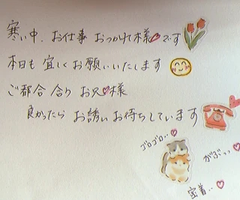 寒い中、お仕事 おつかれ様♥です
本日も 宜しく お願いいたします
ご都合 合う お兄♥様
良かったら お誘い お待ちしています
ゴロゴロ…♡
密着…♡